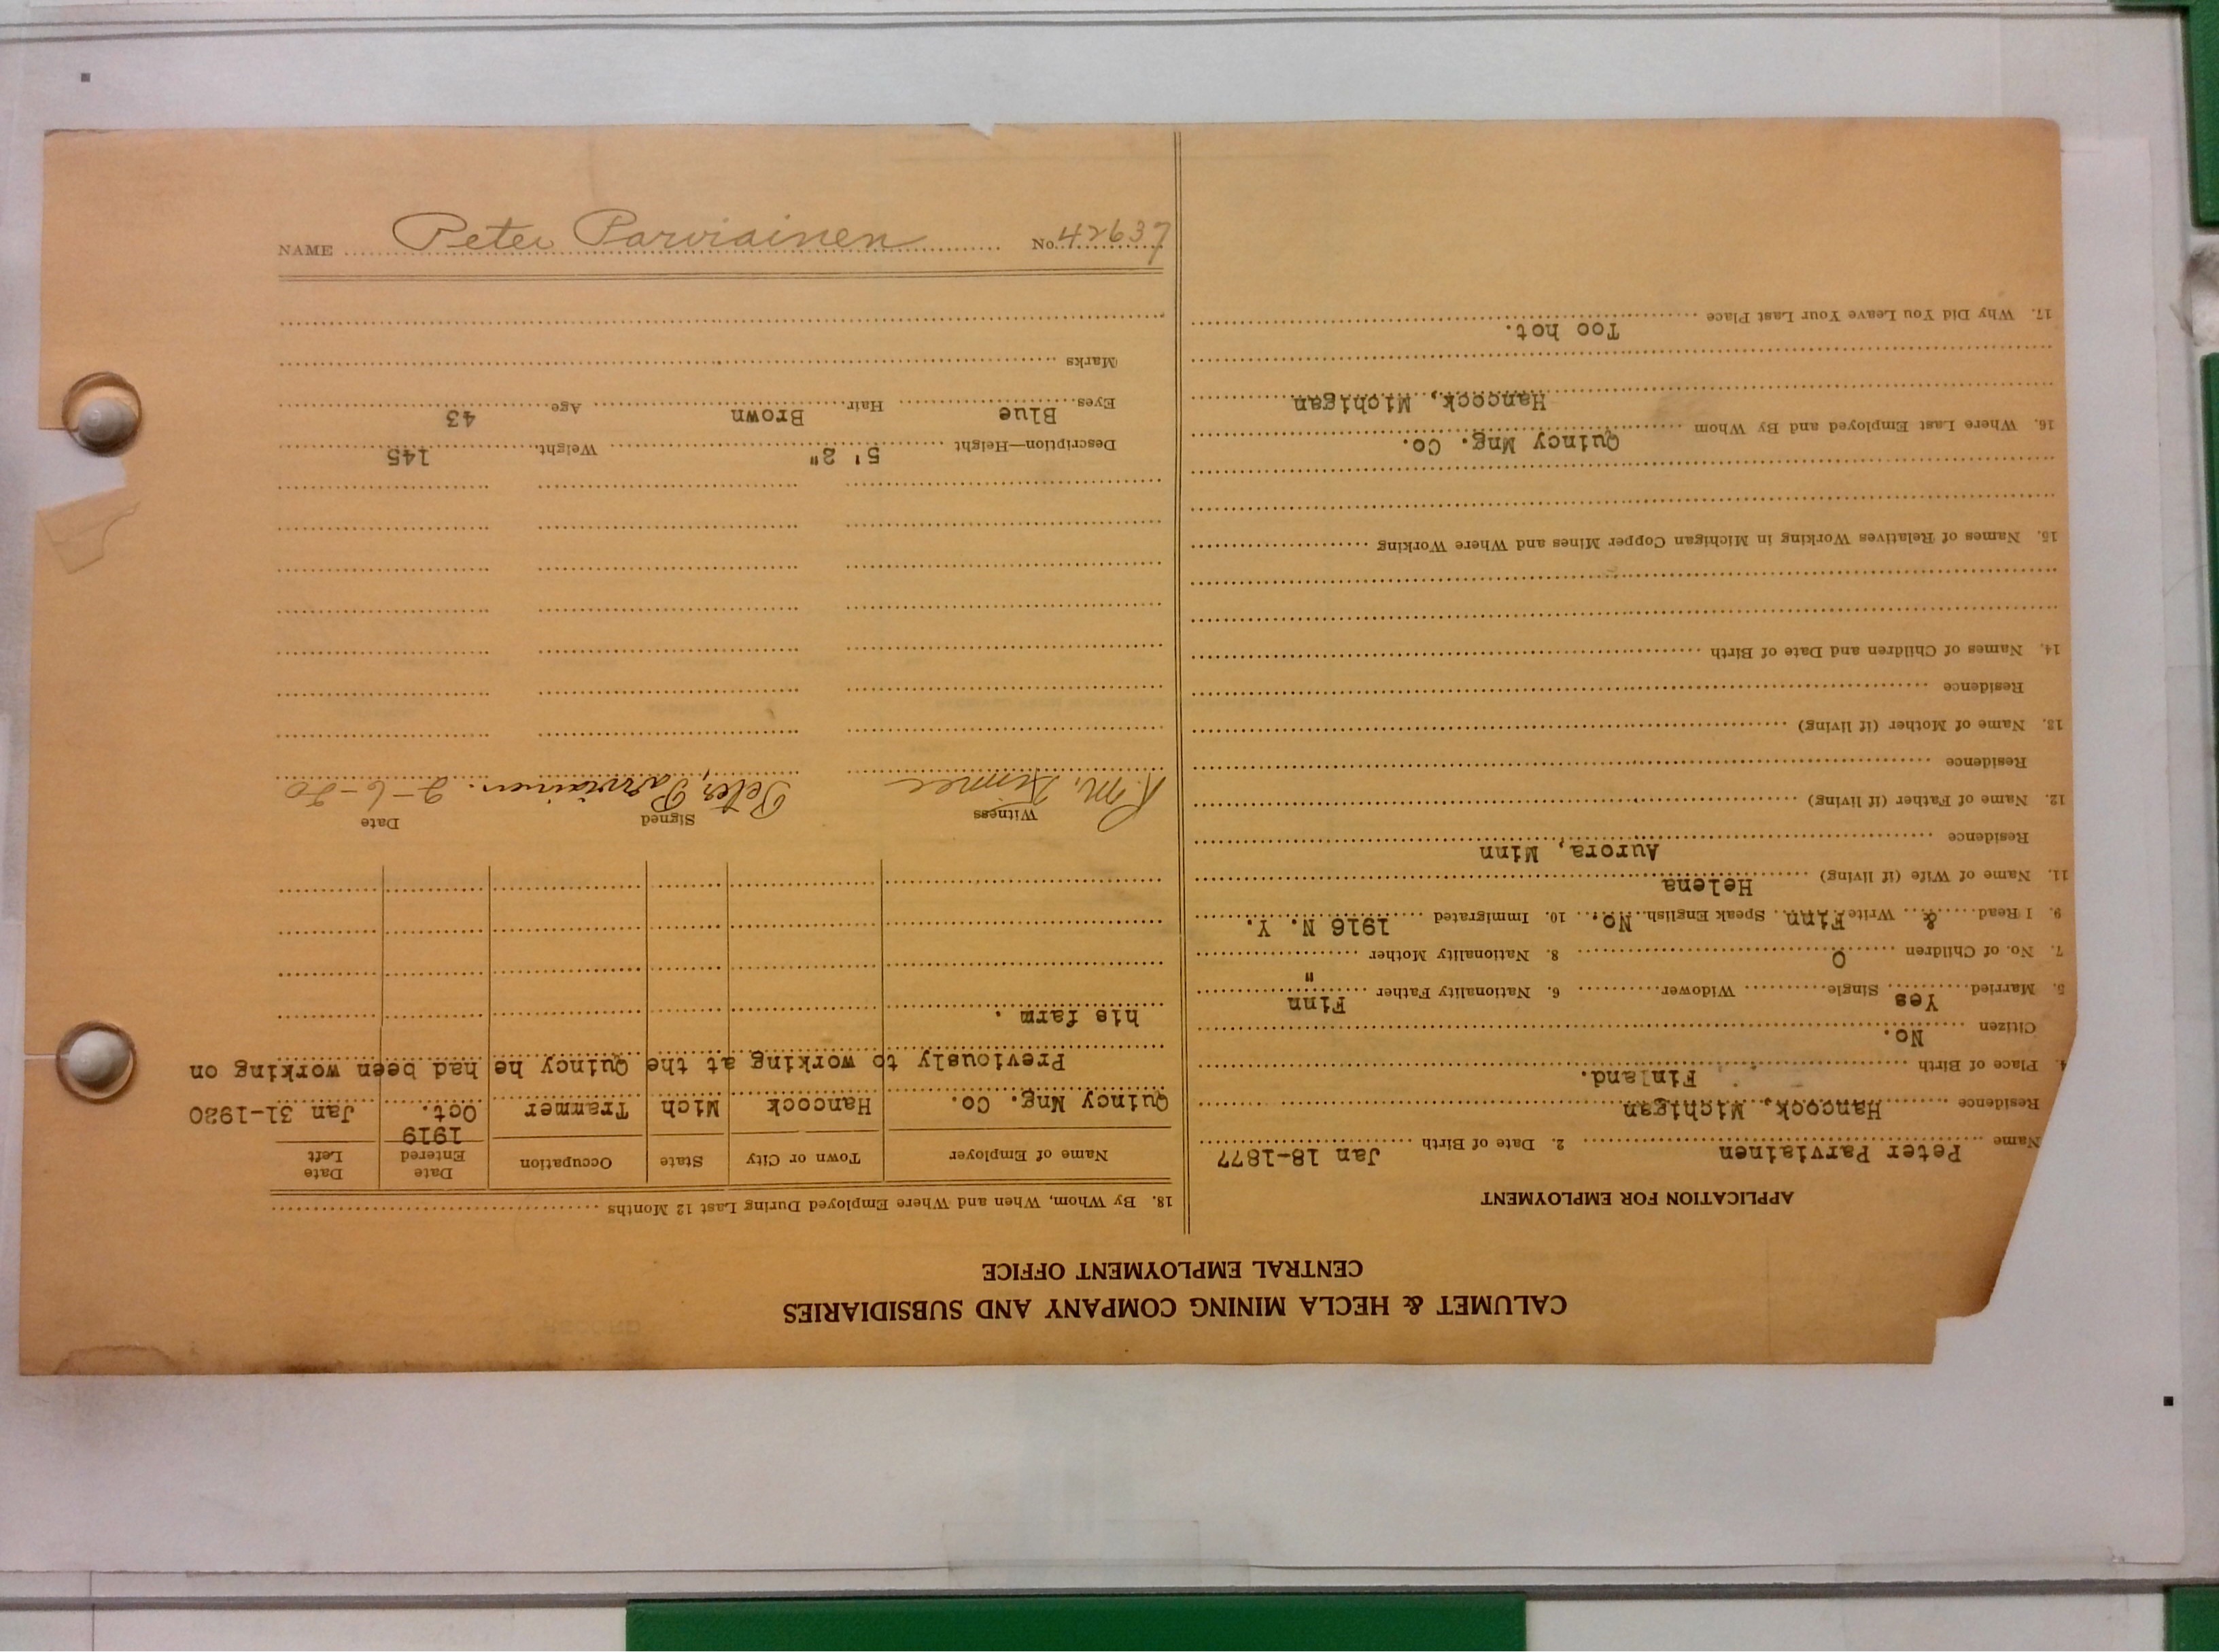 CALUMET & HECLA MINING COMPANY AND SUBSIDIARIES
CENTRAL EMPLOYMENT OFFICE
APPLICATION FOR EMPLOYMENT
Name Peter Parviainen 2. Date of Birth Jan 18-1877
Residence Hancock, Michigan
4. Place of Birth Finland.
Citizen No.
5. Married Yes Single Widower 6. Nationality Father Finn
7. No. of Children 0 8. Nationality Mother "
9. I Read & Write Finn Speak English No. 10. Immigrated 1916 N. Y.
11. Name of Wife (if living) Helena
Residence Aurora, Minn
12. Name of Father (if living)
Residence
13. Name of Mother (if living)
Residence
14. Names of Children and Date of Birth
15. Names of Relatives Working in Michigan Copper Mines and Where Working
16. Where Last Employed and By Whom Quincy Mng. Co.
Hancock, Michigan
17. Why Did You Leave Your Last Place Too hot.
18. By Whom, When and Where Employed During Last 12 Months
Name of Employer Town or City State Occupation Date Entered Date Left
1919
Quincy Mng. Co. Hancock Mich Trammer Oct. Jan 31-1920
Previously to working at the Quincy he had been working on
his farm.
Witness Signed Date
R. M. Peter Parviainen. 2-6-20
Description—Height 5' 2" Weight 145
Eyes Blue Hair Brown Age 43
Marks
NAME Peter Parviainen No. 42637